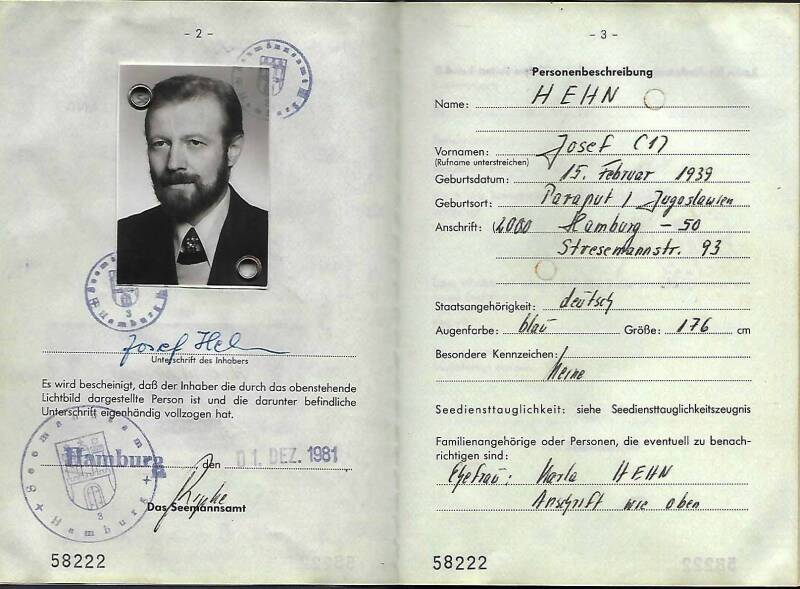 - 2 -
Seemannsamt
Seemannsamt
Hamburg
3
Josef Hehn
Unterschrift des Inhabers
Es wird bescheinigt, daß der Inhaber die durch das obenstehende
Lichtbild dargestellte Person ist und die darunter befindliche
Unterschrift eigenhändig vollzogen hat.
Seemannsamt
Hamburg
3
Hamburg, den 01. DEZ. 1981
Das Seemannsamt
58222
- 3 -
Personenbeschreibung
Name: HEHN
Vornamen: Josef (1)
(Rufname unterstreichen)
Geburtsdatum: 15. Februar 1939
Geburtsort: Paraput / Jugoslawien
Anschrift: (2000 Hamburg - 50
Stresemannstr. 93
Staatsangehörigkeit: deutsch
Augenfarbe: blau Größe: 176 cm
Besondere Kennzeichen:
Keine
Seediensttauglichkeit: siehe Seediensttauglichkeitszeugnis
Familienangehörige oder Personen, die eventuell zu benach-
richtigen sind:
Ehefrau: Karla HEHN
Anschrift wie oben
58222